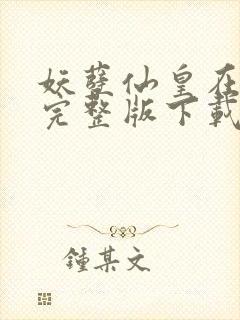 妖孽仙皇在
完整版下載
鍾某文